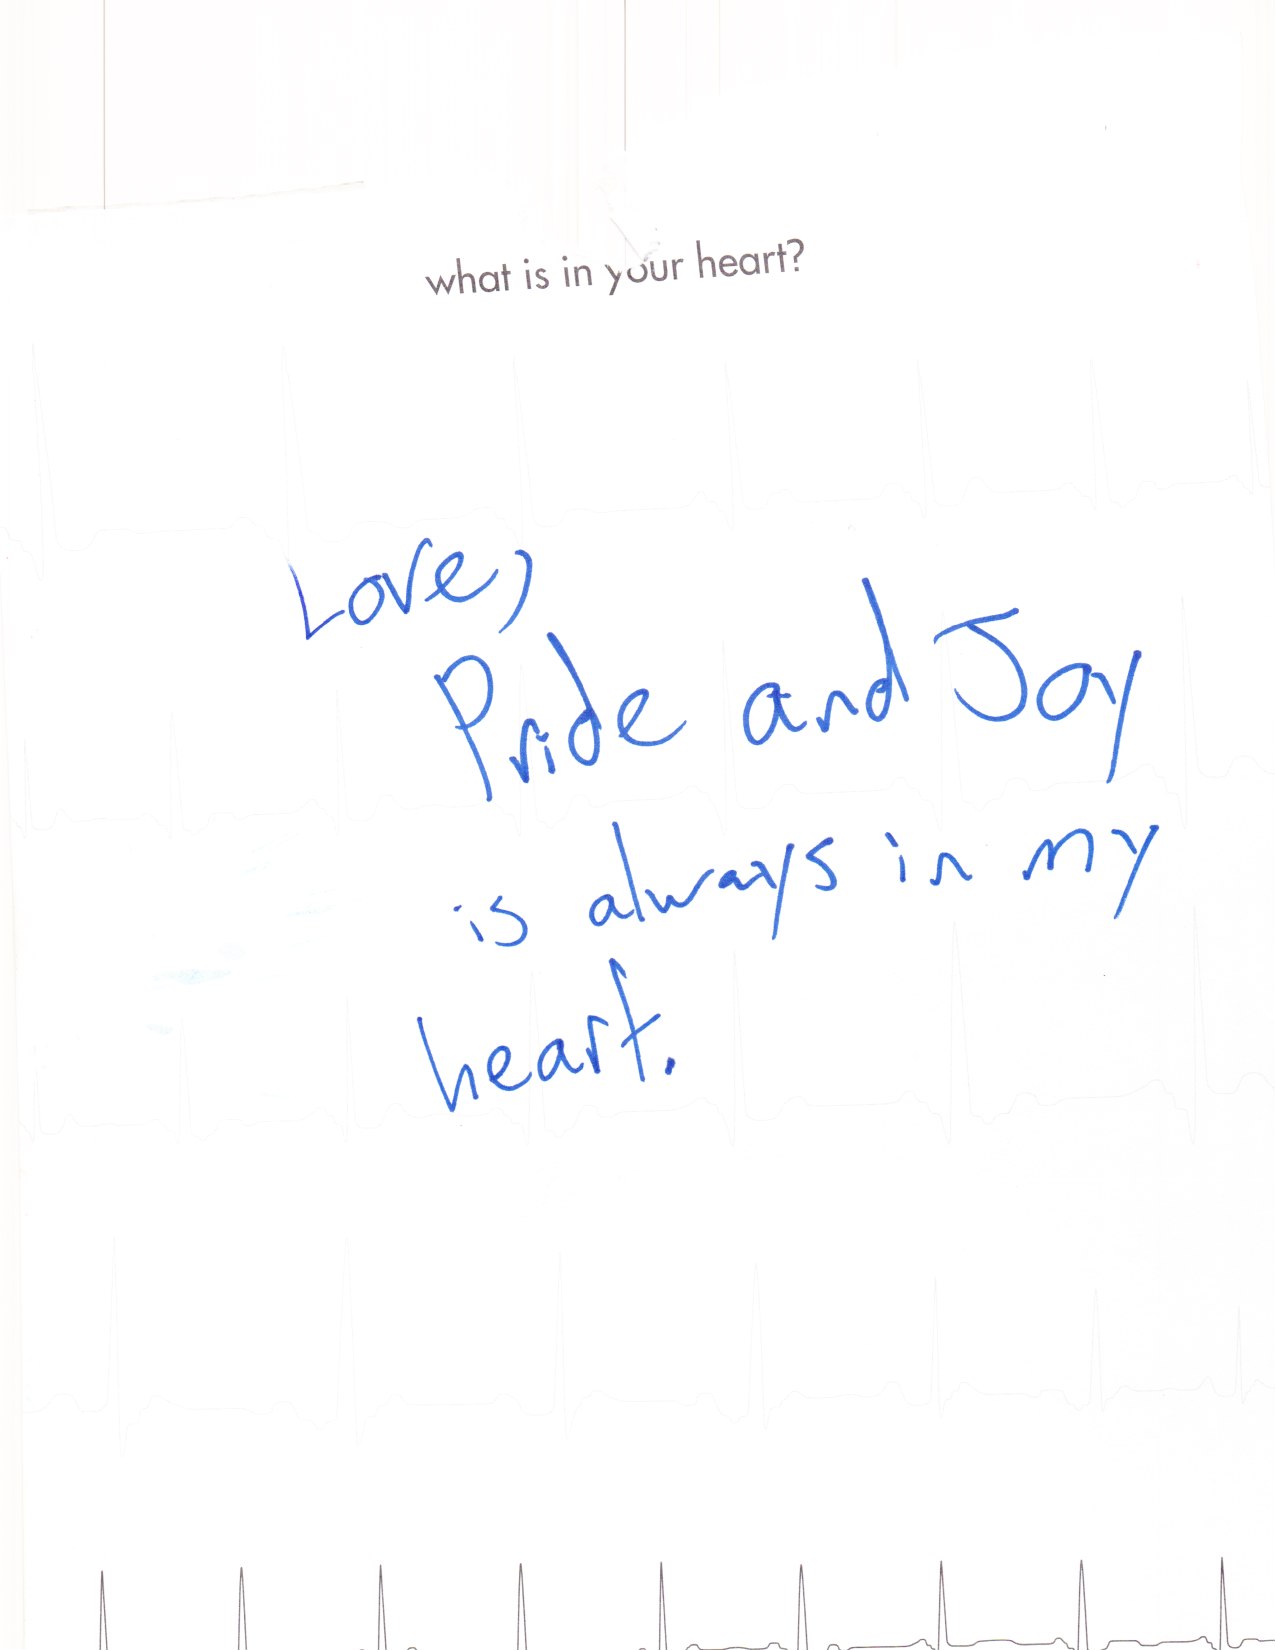 what is in your heart?
Love,
Pride and Joy
is always in my
heart.